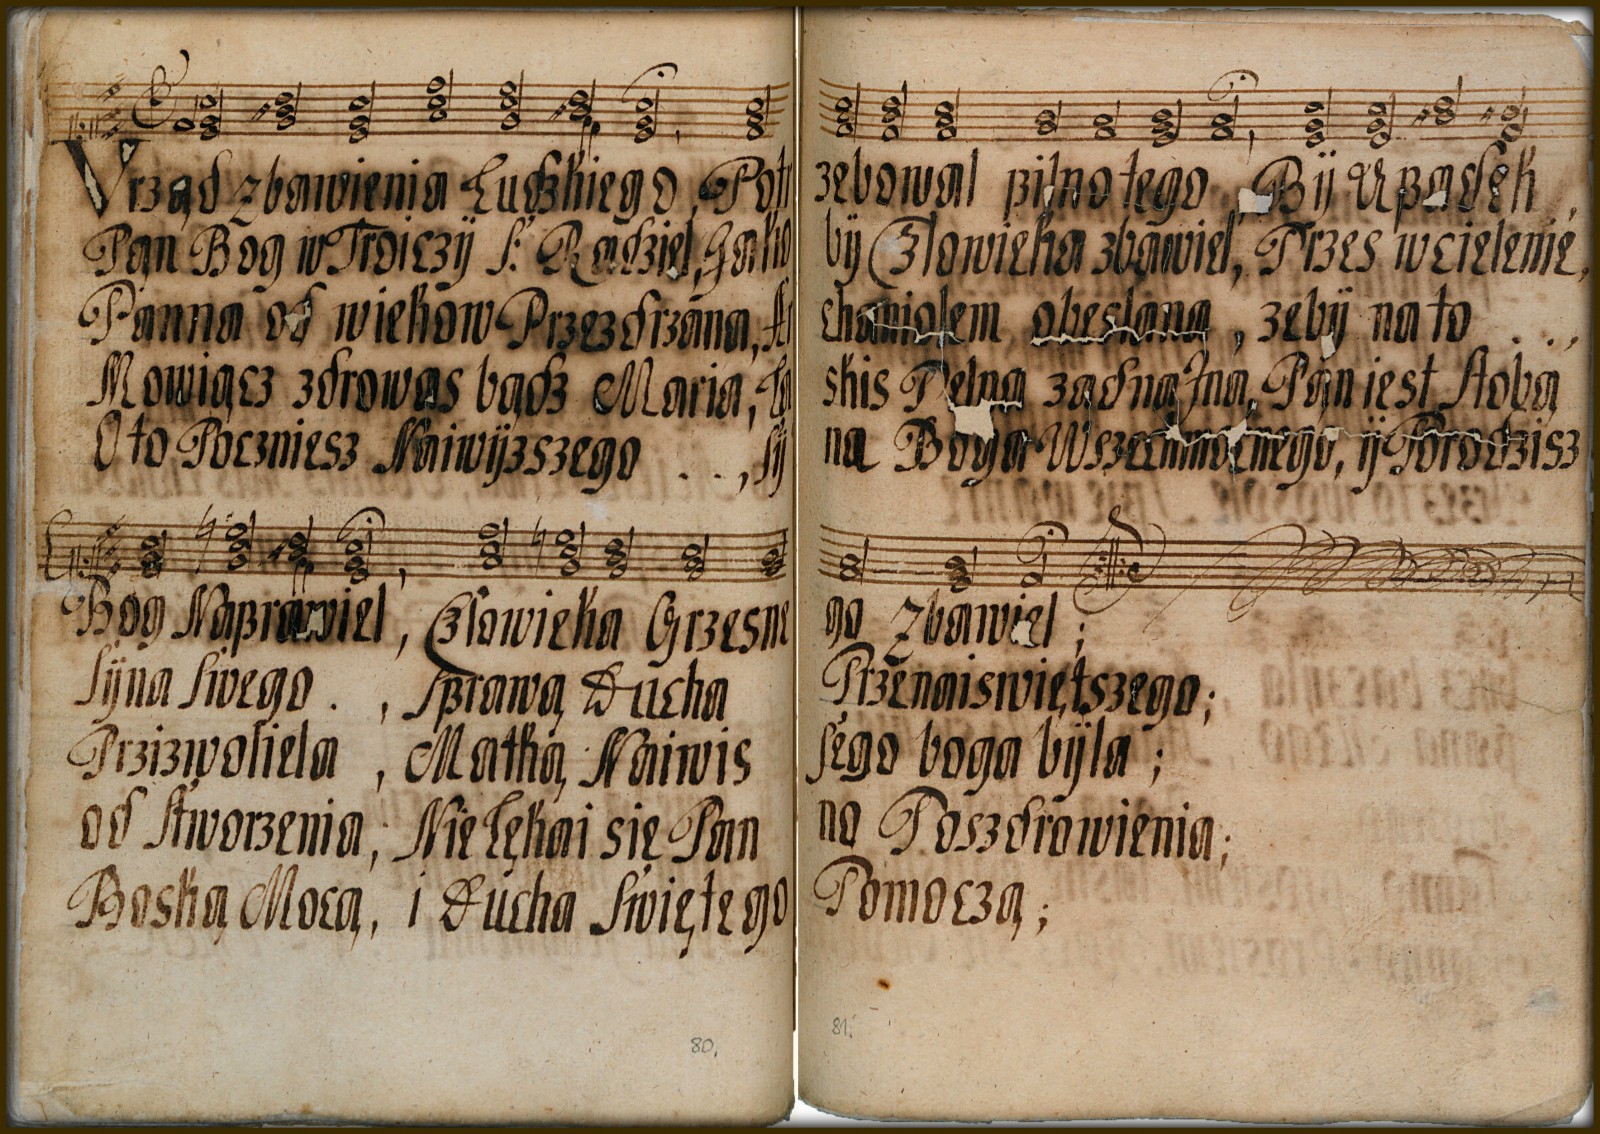 Vrząd zbawienia Ludzkiego, Potr
Pan Bog w Troiczÿ S. Radziel, Jako
Panna od wiekow Przezdrzana, Ar
Mowiącz zdrowas bądz Maria, Ła
Oto Poczniesz Naiwÿzszego . . , Sÿ
Bog Naprawiel, Człowieka Grzesne
Sÿna Swego . , Sprawą Ducha
Przizwoliela , Matką Naiwis
od Stworzenia, Nie Lękai się Pan
Boską Mocą, i Ducha Swiętego
80.
zebowal pilno tego, Bÿ Upadek,
bÿ Człowieka zbawiel, Przes wcielenie,
chaniolem obeslana, zebÿ na to . . ,
skis Pelna zadna Pan iest stobą
na Boga Wszechmocnego, ÿ Porodzisz
go zbawiel ;
Przenaiswiętszego;
sego boga bÿla ;
no Poszdrowienia;
Pomoczą ;
81.